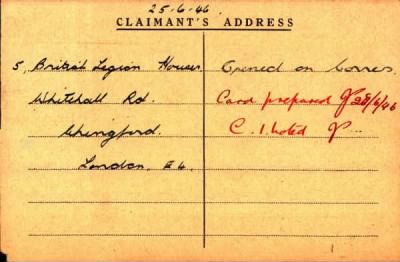 25-6-46
CLAIMANT'S ADDRESS
5, British Legion Houses, Opened on Corres.
Whitehall Rd. Card prepared 28/6/46
Chingford. C.1. noted
London. E4.